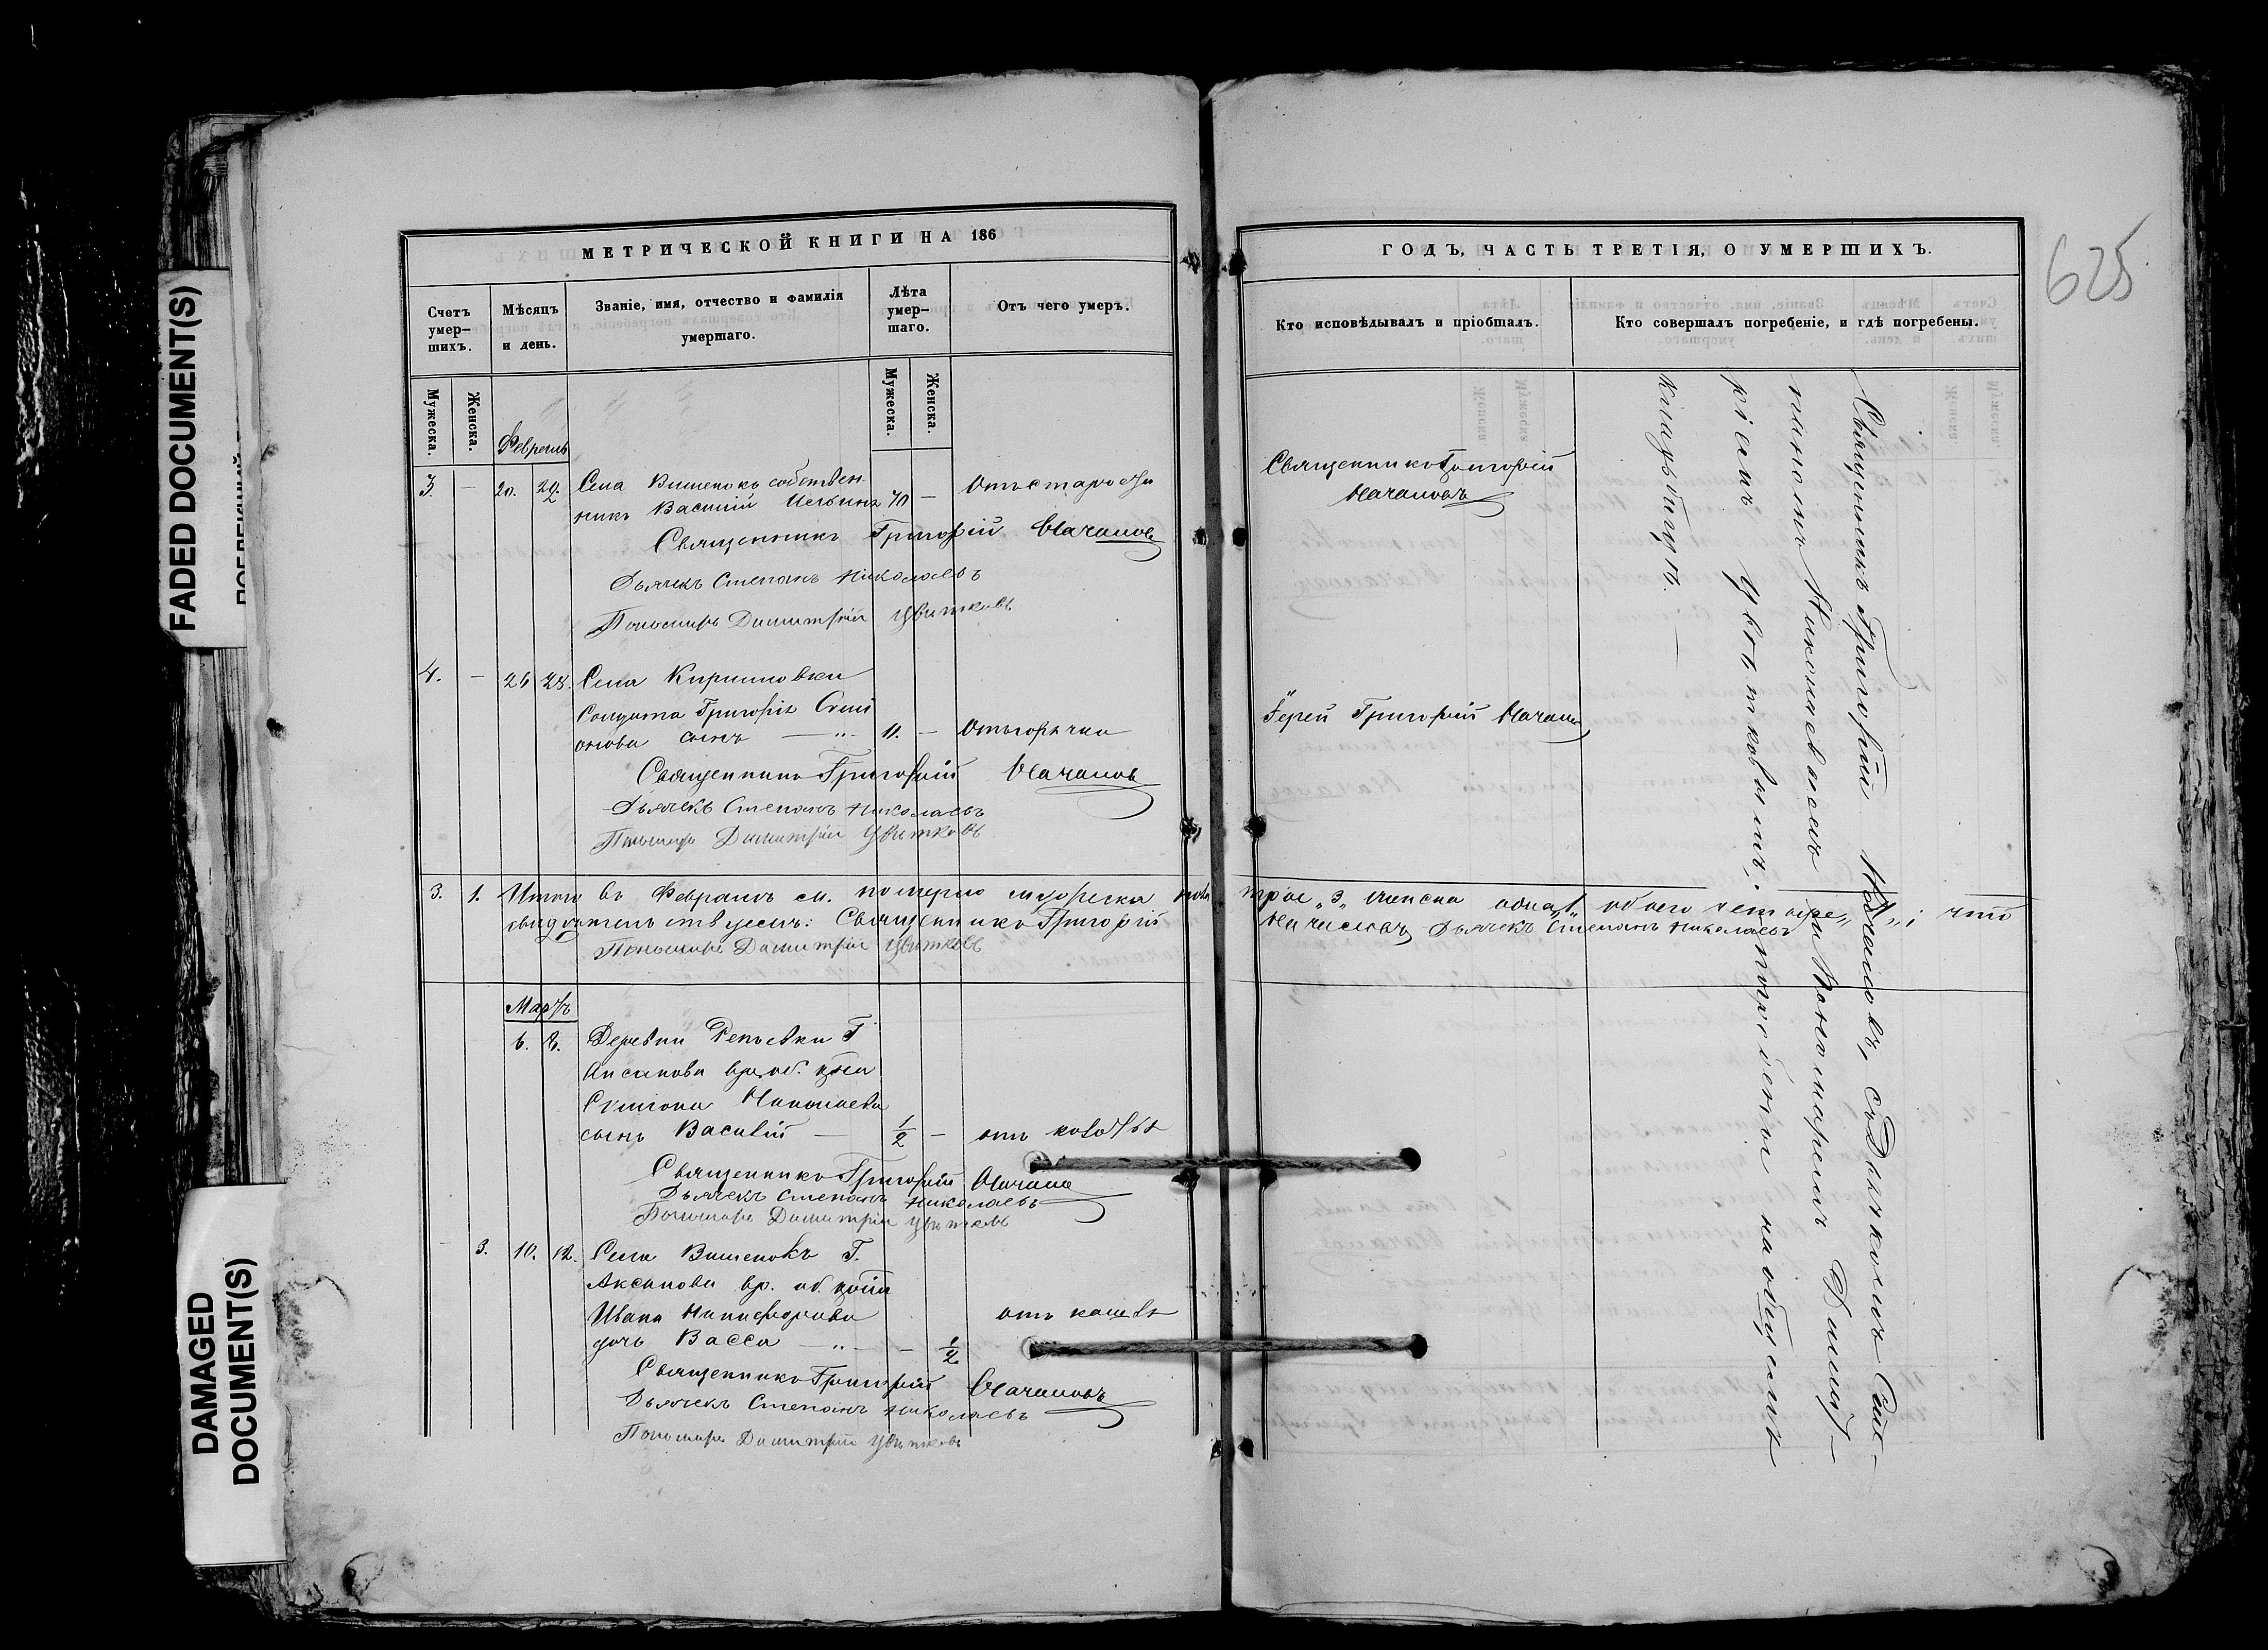 FADED DOCUMENT(S)
DAMAGED
DOCUMENT(S)
625
МЕТРИЧЕСКОЙ КНИГИ НА 186
Счетъ умер-шихъ.
Мѣсяцъ и день.
Званіе, имя, отчество и фамилія умершаго.
Лѣта умер-шаго.
Отъ чего умеръ.
Мужеска.
Женска.
Мужеска.
Женска.
Февраль
3. — 20. 22. Села Вишенокъ собствен
никъ Василій 70 — Отъ старости
Священникъ Григорій
Дьячекъ Степанъ Николаевъ
Пономарь Димитрій Цвѣтковъ
4. — 26 28. Села Кирилловки
Солдата Григорія Сими
онова сынъ — „ — 11. — Отъ горячки
Священникъ Григорій
Дьячекъ Степанъ Николаевъ
Пономарь Димитрій Цвѣтковъ
3. 1. Итого въ Февралѣ м. померло мужеска пола
свидѣтельствуемъ: Священникъ Григорій
Пономарь Димитрій Цвѣтковъ
Мартъ
6. 8. Деревни Репьевки Г.
Аксакова вр. об.
Николаева
сынъ Василій — 1/2 — отъ
Священникъ Григорій
Дьячекъ Степанъ Николаевъ
Пономарь Димитрій Цвѣтковъ
— 3. 10. 12. Села Вишенокъ Г.
Аксакова вр. об.
Ивана Никифорова отъ кашля
дочь Васса — „ — — 1/2
Священникъ Григорій
Дьячекъ Степанъ Николаевъ
Пономарь Димитрій Цвѣтковъ
ГОДЪ, ЧАСТЬ ТРЕТІЯ, О УМЕРШИХЪ.
Кто исповѣдывалъ и пріобщалъ.
Кто совершалъ погребеніе, и гдѣ погребены.
Священникъ Григорій
Іерей Григорій
трое „3„ женска одна „1„ обоего четыре „4„; что
Дьячекъ Степанъ Николаевъ
Священникъ Григорій съ Дьячкомъ Сте-
паномъ Николаевымъ и Пономаремъ Димит-
ріемъ Цвѣтковымъ, погребены на общемъ
кладбищѣ. —